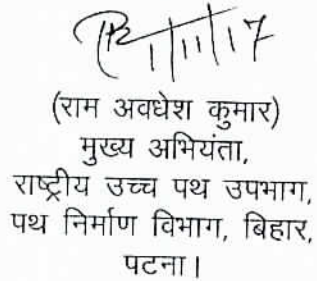 1/11/17
(राम अवधेश कुमार)
मुख्य अभियंता,
राष्ट्रीय उच्च पथ उपभाग,
पथ निर्माण विभाग, बिहार,
पटना।